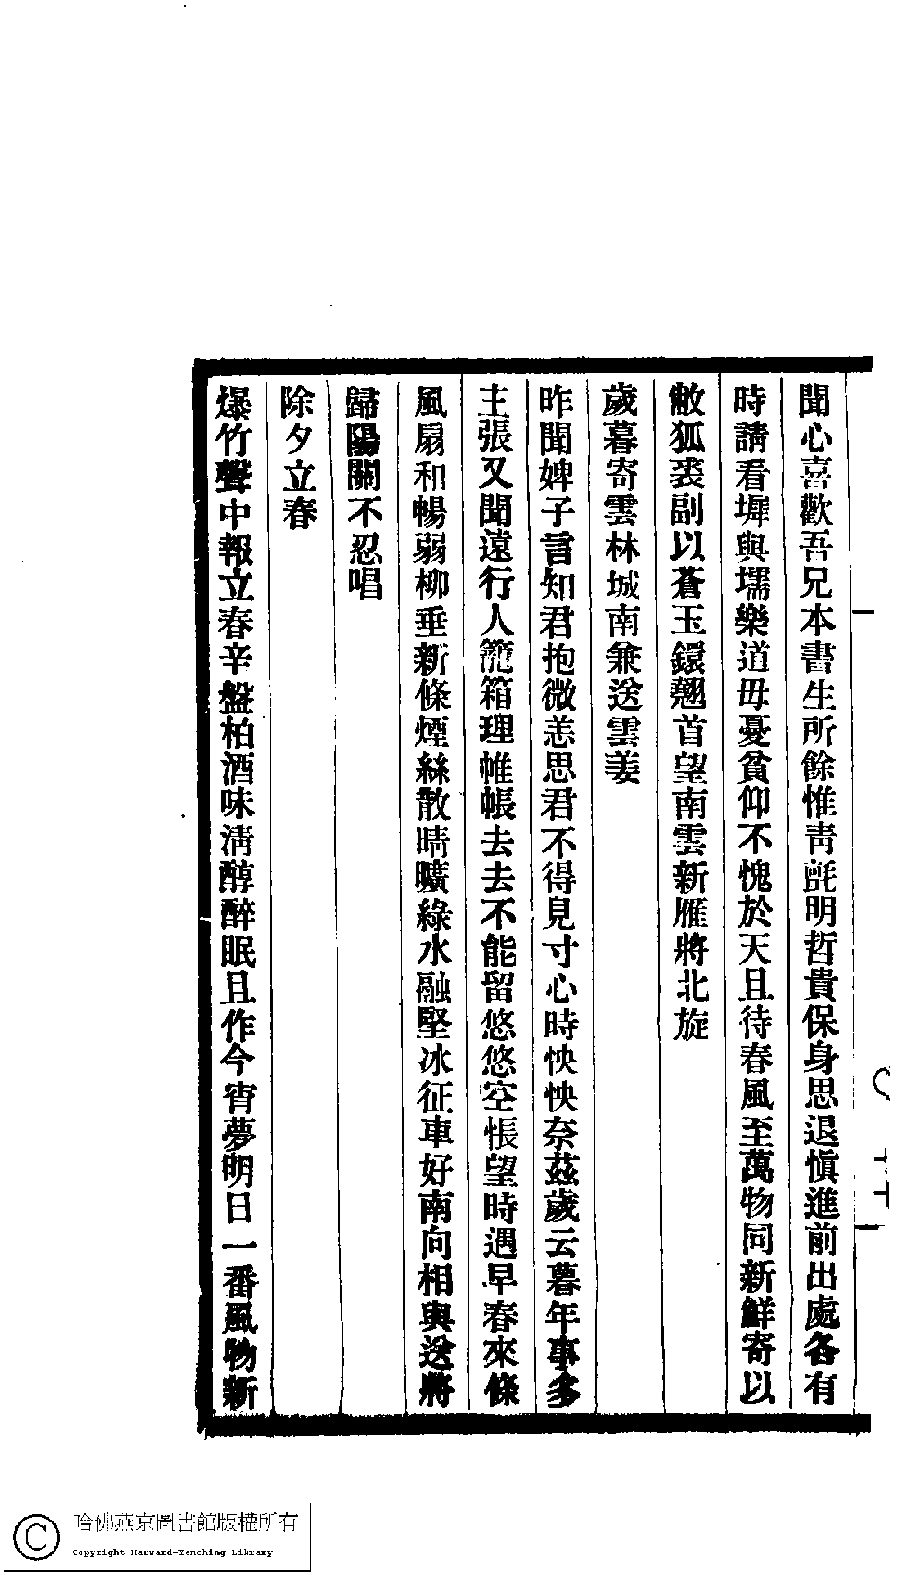 聞心喜歡吾兄本書生所餘惟靑氈明哲貴保身思退愼進前出處各有
時請看墀與壖樂道毋憂貧仰不愧於天且待春風至萬物同新鮮寄以
敝狐裘副以蒼玉鐶翹首望南雲新雁將北旋
歲暮寄雲林城南兼送雲姜
昨聞婢子言知君抱微恙思君不得見寸心時怏怏奈茲歲云暮年事多
主張又聞遠行人籠箱理帷帳去去不能留悠悠空悵望時遇早春來條
風扇和暢弱柳垂新條煙絲散晴曠綠水融堅冰征車好南向相與送將
歸陽關不忍唱
除夕立春
爆竹聲中報立春辛盤柏酒味淸醇醉眠且作今宵夢明日一番風物新
哈佛燕京圖書館版權所有
Copyright Harvard-Yenching Library